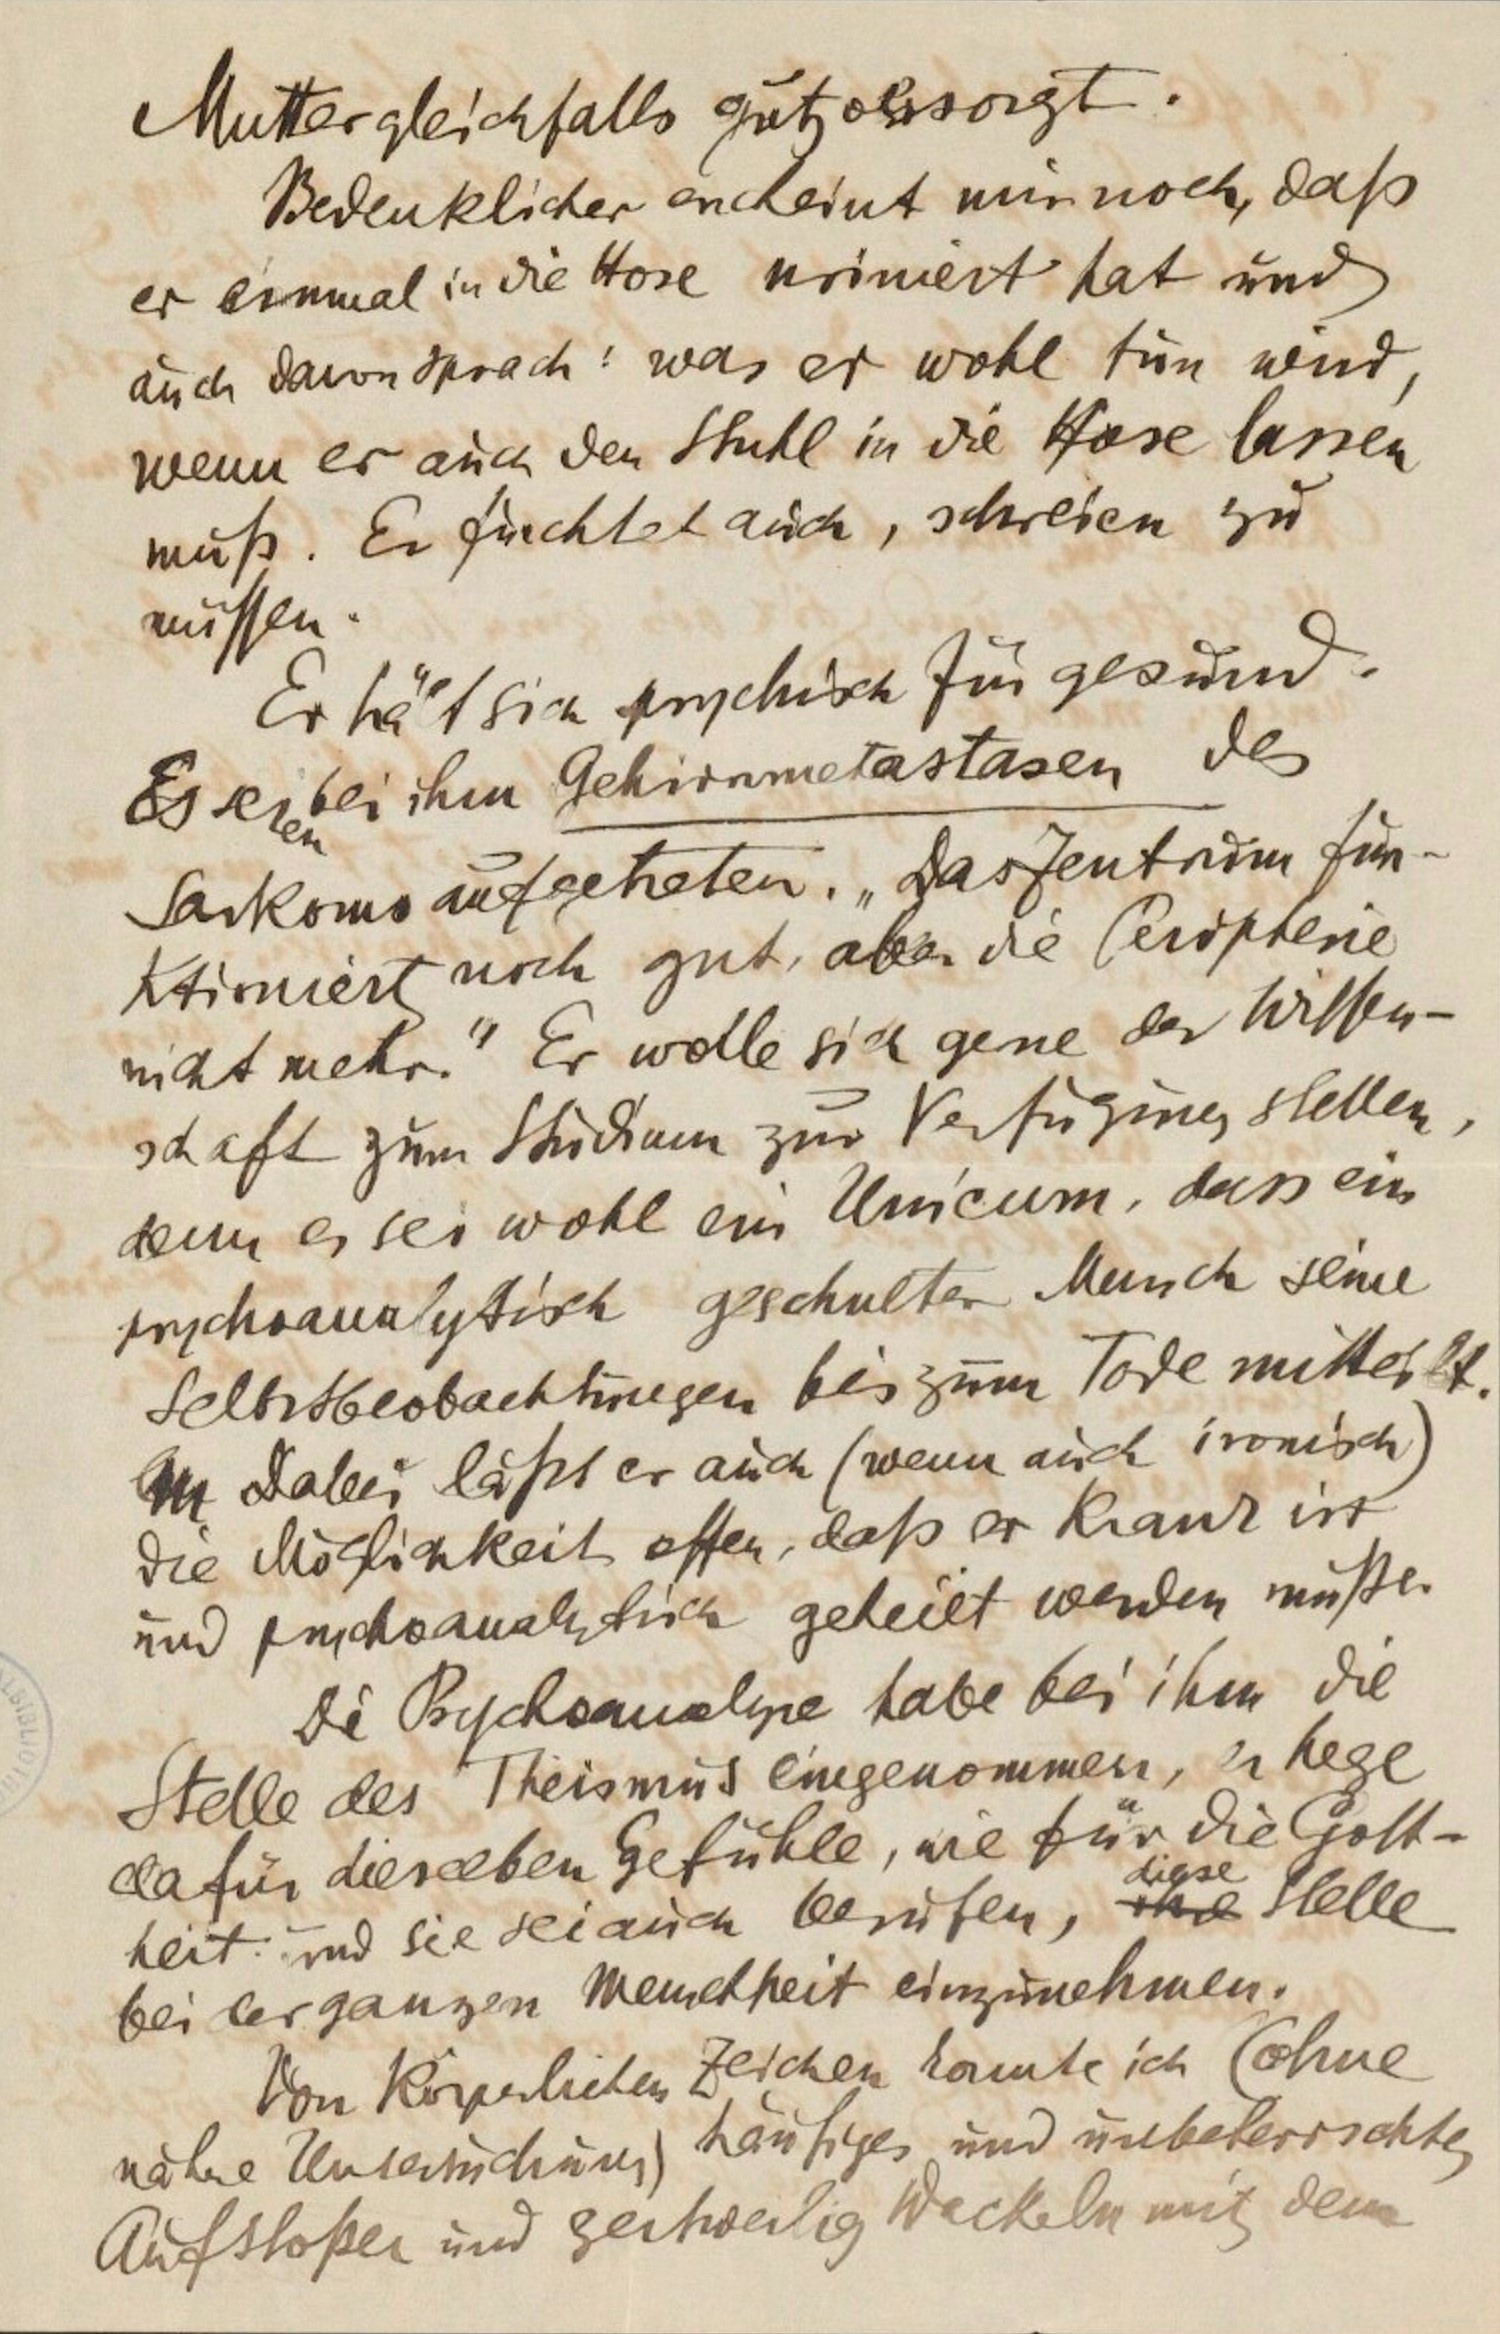 Mutter gleichfalls gut versorgt.
Bedenklicher erscheint mir noch, daß
er einmal in die Hose uriniert hat und
auch davon sprach: was er wohl tun wird,
wenn er auch den Stuhl in die Hose lassen
muß. Er fürchtet auch, schreien zu
müssen.
Er hält sich psychisch für gesund.
Es seien bei ihm Gehirnmetastasen des
Sarkoms aufgetreten. „Das Zentrum fun-
ktioniert noch gut, aber die Peripherie
nicht mehr." Er wolle sich gerne der Wissen-
schaft zum Studium zur Verfügung stellen,
denn es sei wohl ein Unicum, dass ein
psychoanalytisch geschulter Mensch seine
Selbstbeobachtungen bis zum Tode mitteilt.
Dabei läßt er auch (wenn auch ironisch)
die Möglichkeit offen, daß er krank ist
und psychoanalytisch geheilt werden müße.
Di Psychoanalyse habe bei ihm die
Stelle des Theismus eingenommen, er hege
dafür dieselben Gefühle, wie für die Gott-
heit und sie sei auch berufen, diese Stelle
bei der ganzen Menschheit einzunehmen.
Von körperlichen Zeichen konnte ich (ohne
nähre Untersuchung) häufiges und unbeherrschtes
Aufstoßen und zeitweilig Wackeln mit dem